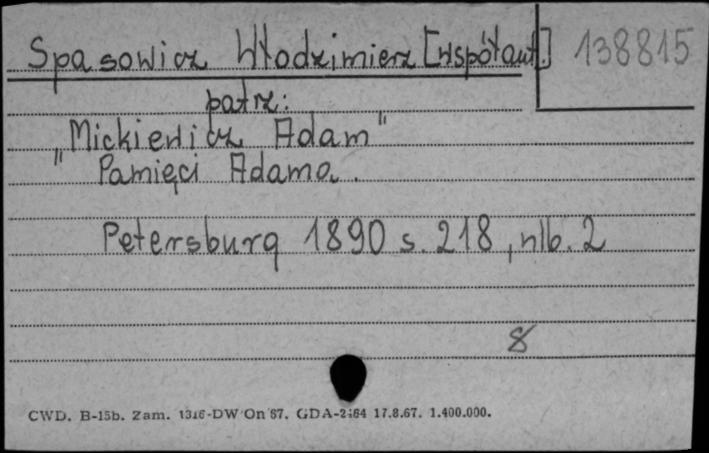 Spasowicz Włodzimierz [współaut.] 138815
patrz:
"Mickiewicz Adam"
" Pamięci Adama.
Petersburg 1890 s. 218, nlb. 2
8
CWD. B-15b. Zam. 1316-DW On 67. GDA-2164 17.8.67. 1.400.000.